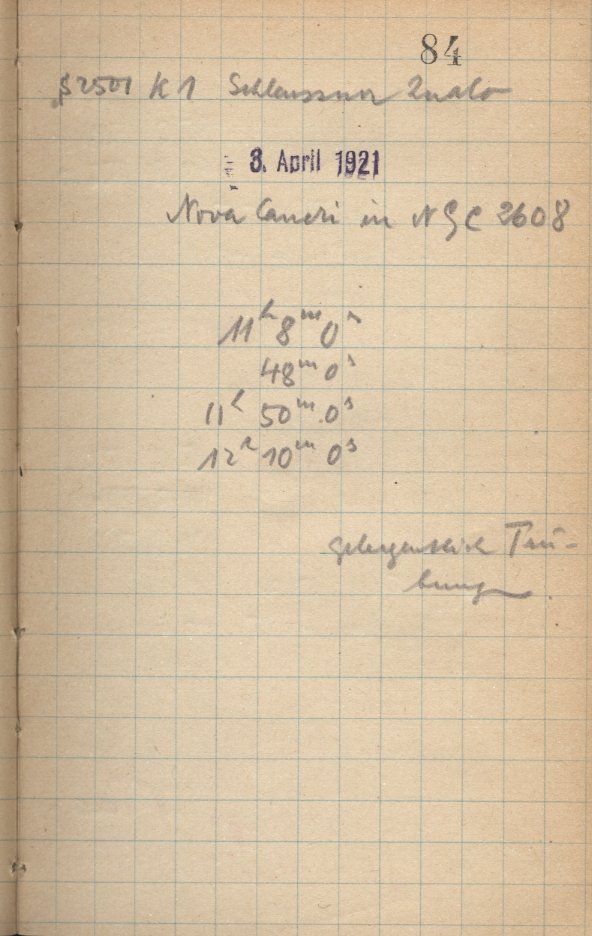 84
S2501 K1 Schleussner
3. April 1921
Nova Cancri in NGC 2608
11h 8m 0s
48m 0s
11h 50m 0s
12h 10m 0s
gelegentlich Trü-
bung